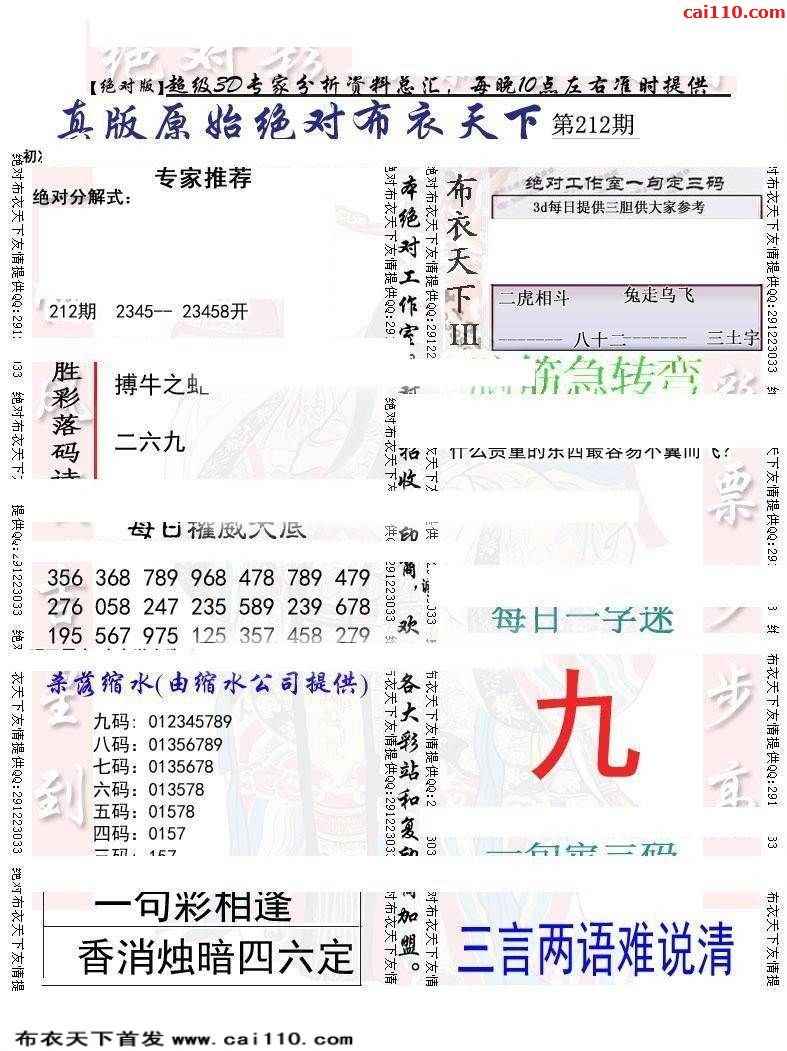 cai110.com
【绝对版】超级3D专家分析资料总汇，每晚10点左右准时提供
真版原始绝对布衣天下 第212期
专家推荐
绝对分解式：
212期 2345-- 23458开
胜彩落码诗
搏牛之虻
二六九
每日摧威大底
356 368 789 968 478 789 479
276 058 247 235 589 239 678
195 567 975 125 357 458 279
杀落缩水(由缩水公司提供)
九码: 012345789
八码: 01356789
七码: 0135678
六码: 013578
五码: 01578
四码: 0157
三码: 157
一句彩相逢
香消烛暗四六定
本绝对工作室
招收
印
商，欢
各大彩站和复印
商加盟。
绝对布衣天下友情提供QQ:291223033
布衣天下III
绝对工作室一句定三码
3d每日提供三胆供大家参考
二虎相斗 兔走乌飞
-------- 八十二------- 三土字
脑筋急转弯
什么贵重的东西最容易不翼而飞？
每日一字迷
九
一句定三码
三言两语难说清
彩票
步高
布衣天下首发 www.cai110.com